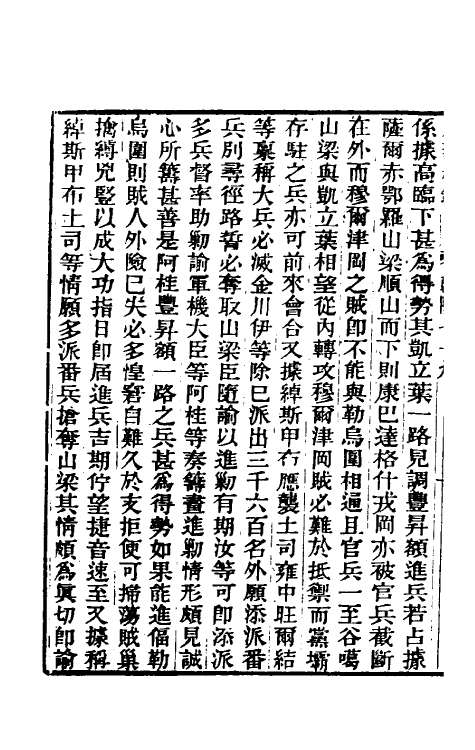 係據高臨下甚為得勢其凱立葉一路見調豐昇額進兵若占據
薩爾亦鄂羅山梁順山而下則康巴達格什戎岡亦被官兵截斷
在外而穆爾津岡之賊卽不能與勒烏圍相通且官兵一至谷噶
山梁與凱立葉相望從內轉攻穆爾津岡賊必難於抵禦而黨壩
存駐之兵亦可前來會合又據綽斯甲布應襲土司雍中旺爾結
等稟稱大兵必滅金川伊等除已派出三千六百名外願添派番
兵別尋徑路誓必奪取山梁臣隨諭以進勦有期汝等可卽添派
多兵督率助勦諭軍機大臣等阿桂等奏籌畫進勦情形頗見誠
心所籌甚善是阿桂豐昇額一路之兵甚為得勢如果能進偪勒
烏圍則賊人外險已失必多惶窘自難久於支拒便可掃蕩賊巢
擒縛兇豎以成大功指日卽屆進兵吉期佇望捷音速至又據稱
綽斯甲布土司等情願多派番兵搶奪山梁其情頗為眞切卽諭